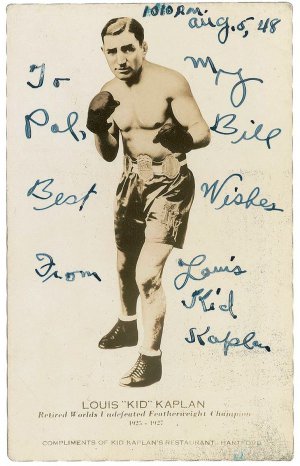 10:10 A.M.
Aug. 5, 48
To My
Pal, Bill
Best Wishes
From Louis
Kid
Kaplan
LOUIS "KID" KAPLAN
Retired Worlds Undefeated Featherweight Champion
1925 - 1927
COMPLIMENTS OF KID KAPLAN'S RESTAURANT - HARTFORD